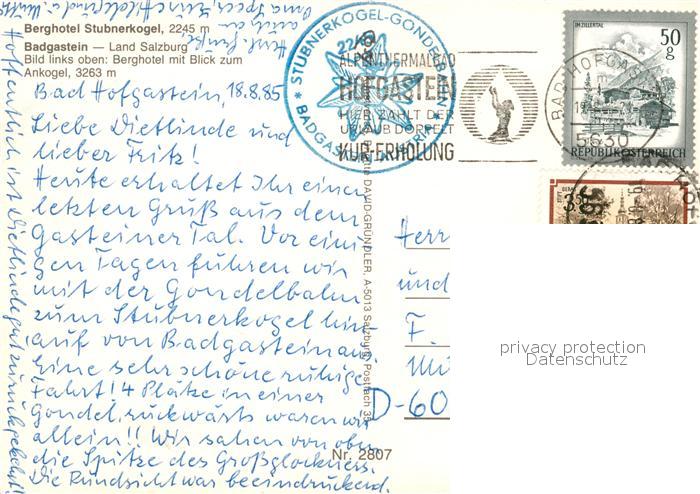 Berghotel Stubnerkogel, 2245 m
Badgastein — Land Salzburg
Bild links oben: Berghotel mit Blick zum
Ankogel, 3263 m
Bad Hofgastein, 18.8.85
Liebe Dietlinde und
lieber Fritz!
Heute erhaltet Ihr einen
letzten Gruß aus dem
Gasteiner Tal. Vor eini
gen Tagen fuhren wir
mit der Gondelbahn
zum Stubnerkogel hin
auf von Badgastein aus.
Eine sehr schöne ruhige
Fahrt! 4 Plätze in einer
Gondel, rückwärts waren wir
allein!! Wir sahen von oben
die Spitze des Großglockners.
Die Rundsicht war beeindruckend.
Hoffentlich ist Dietlinde gut zurückgekehrt!
STUBNERKOGEL-GONDELBAHN
2245
BADGASTEIN
ALPENTHERMALBAD
HOFGASTEIN
HIER ZÄHLT DER
URLAUB DOPPELT
KUR-ERHOLUNG
BAD HOFGASTEIN
5630
IM ZILLERTAL
50
g
REPUBLIK ÖSTERREICH
DAVID-GRÜNDLER, A-5013 Salzburg, Postfach 35
Herr
und
F.
D-60
Nr. 2807
privacy protection
Datenschutz